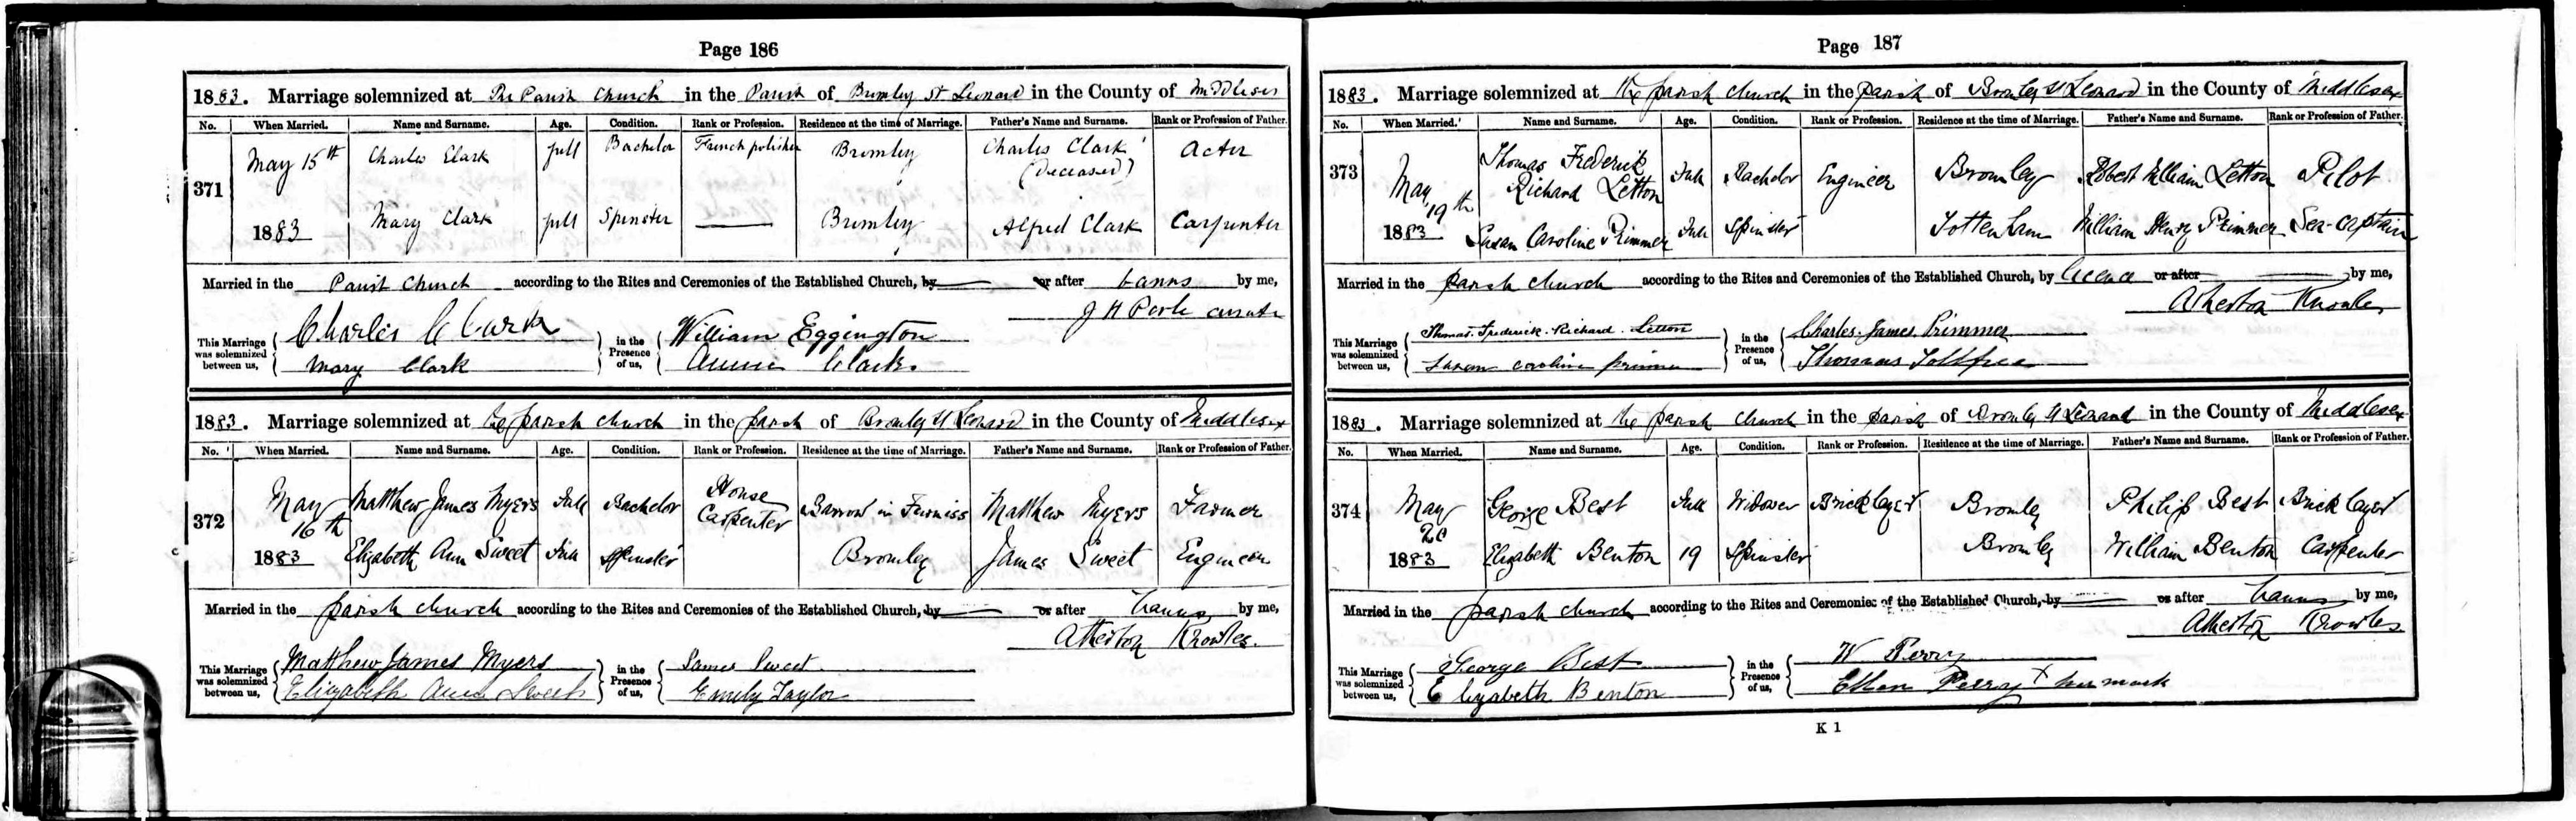 Page 186
1883. Marriage solemnized at The Parish Church in the Parish of Bromley St Leonard in the County of Middlesex
No. When Married. Name and Surname. Age. Condition. Rank or Profession. Residence at the time of Marriage. Father's Name and Surname. Rank or Profession of Father.
371 May 15th 1883 Charles Clark full Bachelor French polisher Bromley Charles Clark (deceased) Actor
Mary Clark full Spinster Bromley Alfred Clark Carpenter
Married in the Parish Church according to the Rites and Ceremonies of the Established Church, by or after banns by me,
J H curate
This Marriage was solemnized between us, Charles Clark in the Presence of us, William Eggington
Mary Clark Annie Clark.
1883. Marriage solemnized at the parish church in the parish of Bromley St Leonard in the County of Middlesex
No. When Married. Name and Surname. Age. Condition. Rank or Profession. Residence at the time of Marriage. Father's Name and Surname. Rank or Profession of Father.
372 May 16th 1883 Matthew James Myers Full Bachelor House Carpenter Barrow in Furniss Matthew Myers Farmer
Elizabeth Ann Sweet Full Spinster Bromley James Sweet Engineer
Married in the parish church according to the Rites and Ceremonies of the Established Church, by or after banns by me,
Atherton Knowles.
This Marriage was solemnized between us, Matthew James Myers in the Presence of us, James Sweet.
Elizabeth Ann Sweet Emily Taylor
Page 187
1883. Marriage solemnized at the parish church in the parish of Bromley St Leonard in the County of Middlesex
No. When Married. Name and Surname. Age. Condition. Rank or Profession. Residence at the time of Marriage. Father's Name and Surname. Rank or Profession of Father.
373 May 19th 1883 Thomas Frederick Richard Letton Full Bachelor Engineer Bromley Robert William Letton Pilot
Susan Caroline Primmer Full Spinster Tottenham William Henry Primmer Sea-captain
Married in the parish church according to the Rites and Ceremonies of the Established Church, by licence or after by me,
Atherton Knowles
This Marriage was solemnized between us, Thomas. Frederick. Richard. Letton in the Presence of us, Charles. James. Primmer
Susan caroline primmer Thomas
1883. Marriage solemnized at the parish church in the parish of Bromley St Leonard in the County of Middlesex
No. When Married. Name and Surname. Age. Condition. Rank or Profession. Residence at the time of Marriage. Father's Name and Surname. Rank or Profession of Father.
374 May 20 1883 George Best Full Widower Bricklayer Bromley Philip Best Bricklayer
Elizabeth Benton 19 Spinster Bromley William Benton Carpenter
Married in the parish church according to the Rites and Ceremonies of the Established Church, by or after banns by me,
Atherton Knowles
This Marriage was solemnized between us, George Best in the Presence of us, W Perry
Elizabeth Benton Ellen Perry X her mark
K 1